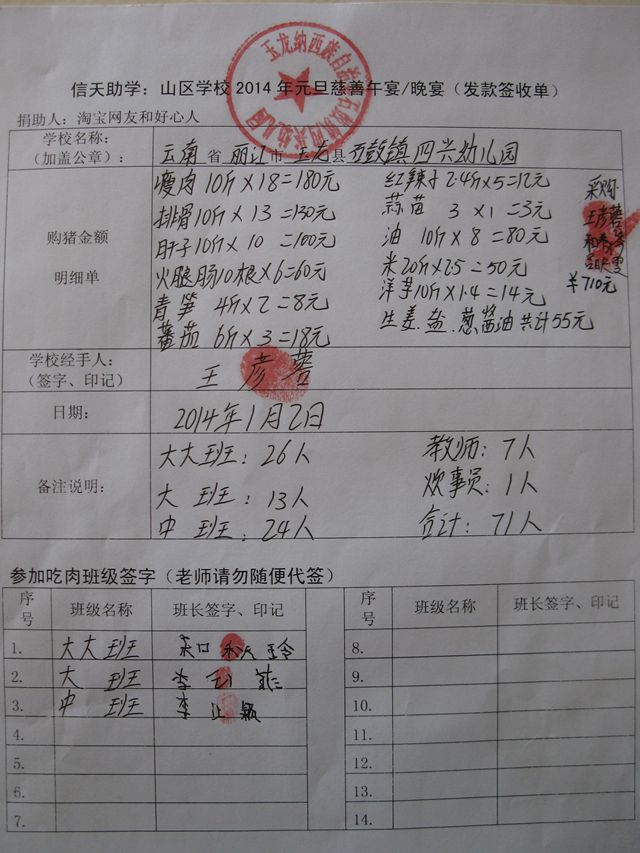 信天助学：山区学校2014年元旦慈善午宴/晚宴（发款签收单）
捐助人：淘宝网友和好心人
学校名称：
（加盖公章）：
云南省 丽江市 玉龙县 石鼓镇 四兴幼儿园
购猪金额
明细单
瘦肉10斤×18=180元
排骨10斤×13=130元
肝子10斤×10=100元
火腿肠10根×6=60元
青笋 4斤×2=8元
蕃茄 6斤×3=18元
红辣子2.4斤×5=12元
蒜苗 3×1=3元
油 10斤×8=80元
米20斤×2.5=50元
洋芋10斤×1.4=14元
生姜.盐.葱酱油共计55元
采购
王彦蓉
¥710元
学校经手人：
（签字、印记）
王彦蓉
日期：
2014年1月2日
备注说明：
大大班：26人
大 班：13人
中 班：24人
教师：7人
炊事员：1人
合计：71人
参加吃肉班级签字（老师请勿随便代签）
序号 班级名称 班长签字、印记 序号 班级名称 班长签字、印记
1. 大大班 8.
2. 大 班 李 9.
3. 中 班 李 颖 10.
4. 11.
5. 12.
6. 13.
7. 14.